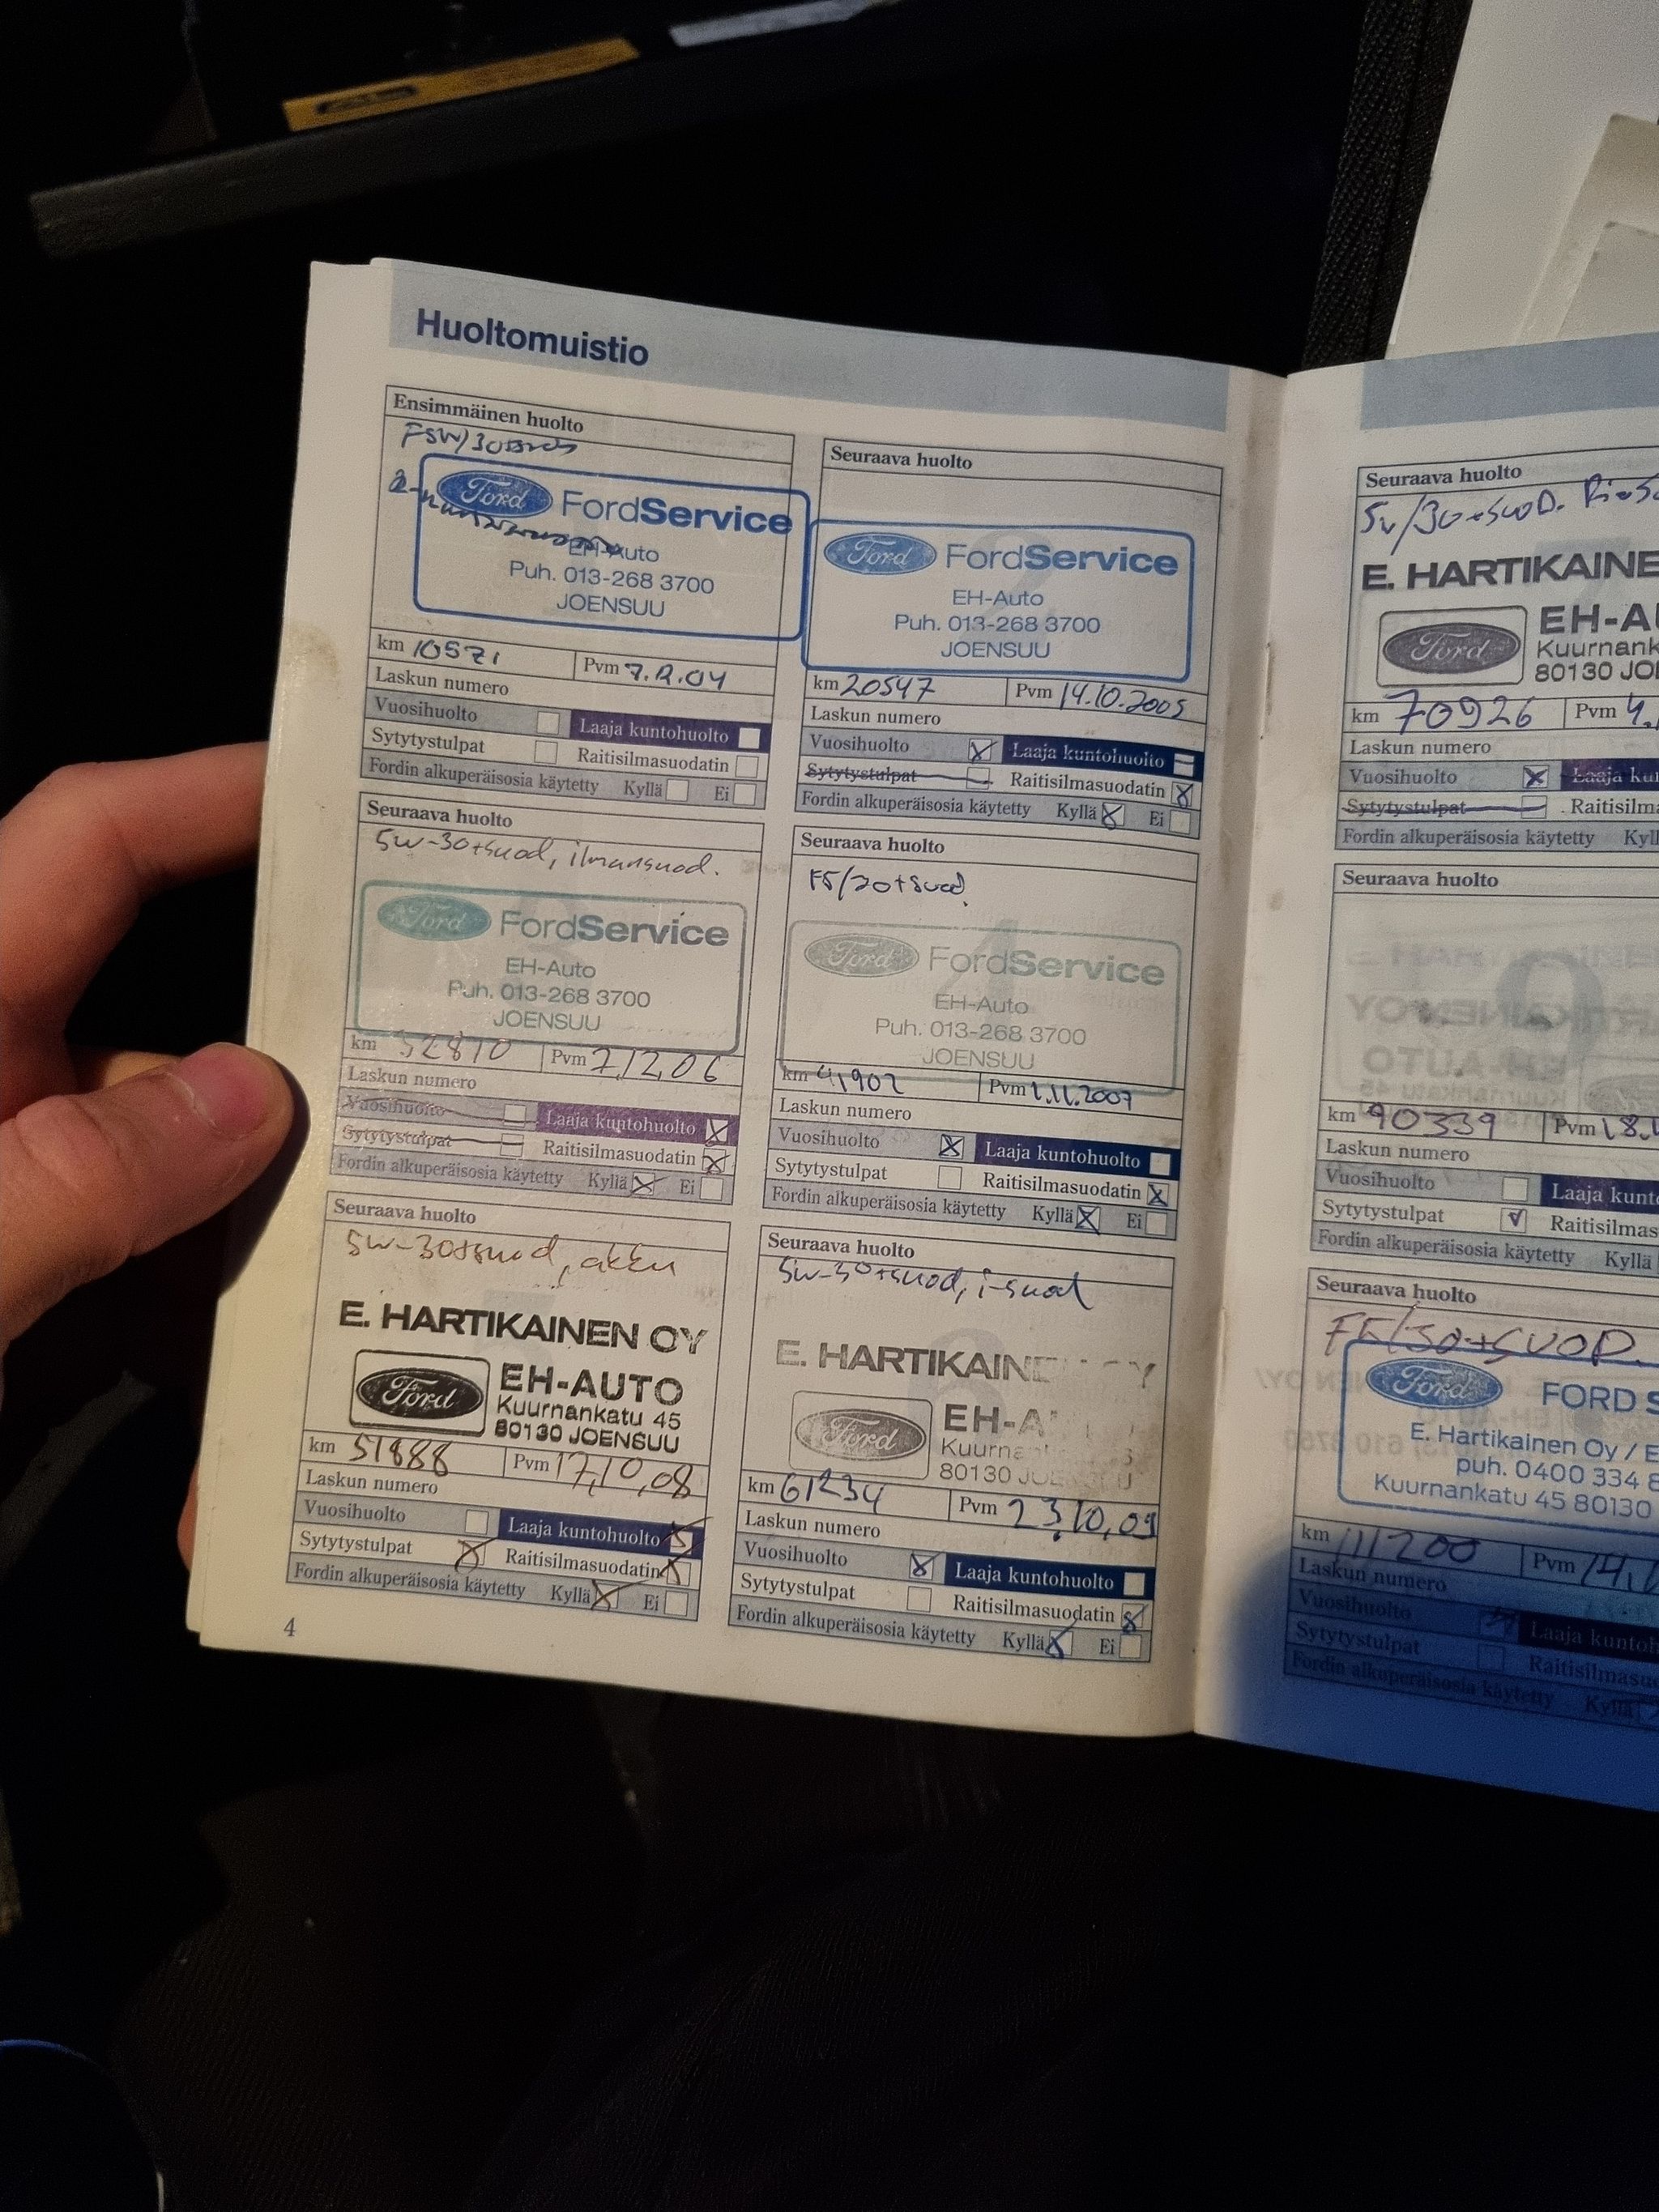 Huoltomuistio
Ensimmäinen huolto
Ford FordService
EH-Auto
Puh. 013-268 3700
JOENSUU
km 10571 Pvm 7.12.04
Laskun numero
Vuosihuolto Laaja kuntohuolto
Sytytystulpat Raitisilmasuodatin
Fordin alkuperäisosia käytetty Kyllä Ei
Seuraava huolto
2
Ford FordService
EH-Auto
Puh. 013-268 3700
JOENSUU
km 20547 Pvm 14.10.2005
Laskun numero
Vuosihuolto Laaja kuntohuolto
Sytytystulpat Raitisilmasuodatin
Fordin alkuperäisosia käytetty Kyllä Ei
Seuraava huolto
5w-30+suod, ilmansuod.
Ford FordService
EH-Auto
Puh. 013-268 3700
JOENSUU
km 32810 Pvm 7,12,06
Laskun numero
Vuosihuolto Laaja kuntohuolto
Sytytystulpat Raitisilmasuodatin
Fordin alkuperäisosia käytetty Kyllä Ei
Seuraava huolto
F5/30+suod.
4
Ford FordService
EH-Auto
Puh. 013-268 3700
JOENSUU
km 41902 Pvm 1.11.2007
Laskun numero
Vuosihuolto Laaja kuntohuolto
Sytytystulpat Raitisilmasuodatin
Fordin alkuperäisosia käytetty Kyllä Ei
Seuraava huolto
5w-30+suod, akku
5
E. HARTIKAINEN OY
Ford EH-AUTO
Kuurnankatu 45
80130 JOENSUU
km 51888 Pvm 17,10,08
Laskun numero
Vuosihuolto Laaja kuntohuolto
Sytytystulpat Raitisilmasuodatin
Fordin alkuperäisosia käytetty Kyllä Ei
Seuraava huolto
5w-30+suod, i-suod
6
E. HARTIKAINEN OY
Ford EH-A
Kuurna
80130 JOENSUU
km 61234 Pvm 23,10,09
Laskun numero
Vuosihuolto Laaja kuntohuolto
Sytytystulpat Raitisilmasuodatin
Fordin alkuperäisosia käytetty Kyllä Ei
4
Seuraava huolto
5w/30+suod.
E. HARTIKAINE
Ford EH-AU
Kuurnank
80130 JOE
km 70926 Pvm 4.
Laskun numero
Vuosihuolto Laaja ku
Sytytystulpat Raitisilma
Fordin alkuperäisosia käytetty Kyll
Seuraava huolto
9
km 90339 Pvm 18.
Laskun numero
Vuosihuolto Laaja kunto
Sytytystulpat Raitisilmas
Fordin alkuperäisosia käytetty Kyllä
Seuraava huolto
F5/30+SUOD.
Ford FORD S
E. Hartikainen Oy / E
puh. 0400 334 8
Kuurnankatu 45 80130
km 111200 Pvm 14.
Laskun numero
Vuosihuolto Laaja kuntoh
Sytytystulpat Raitisilmasu
Fordin alkuperäisosia käytetty Kyllä